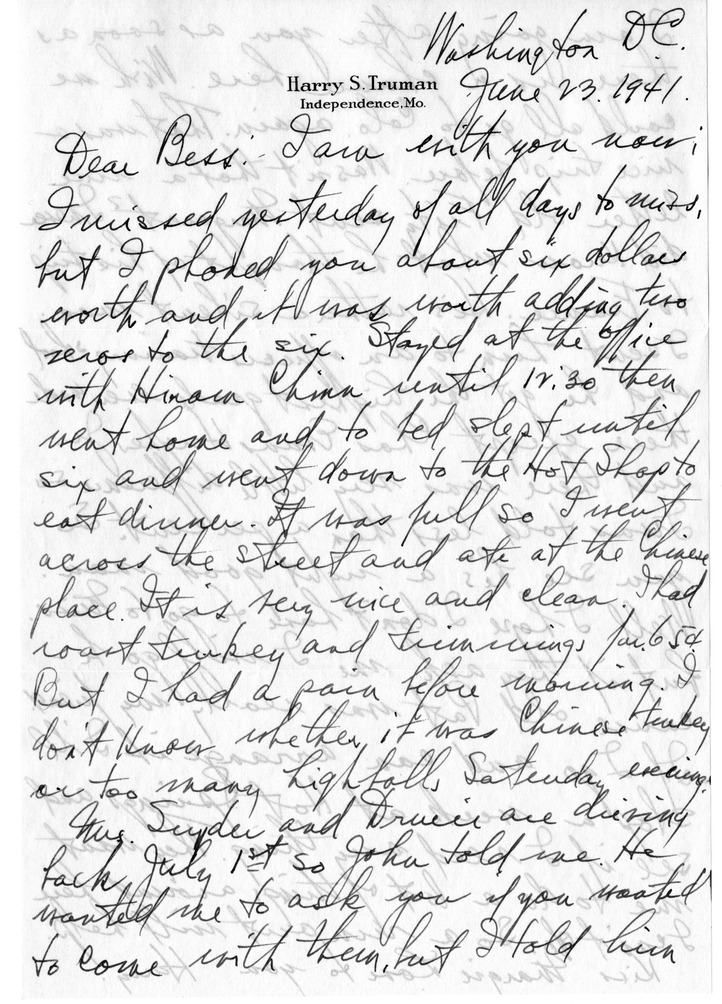 Washington D.C.
Harry S. Truman
Independence, Mo.
June 23. 1941.
Dear Bess: I am with you now;
I missed yesterday of all days to miss,
but I phoned you about six dollars
worth and it was worth adding two
zeros to the six. Stayed at the office
with Hiram until 12:30 then
went home and to bed slept until
six and went down to the Hot Shop to
eat dinner. It was full so I went
across the street and ate at the Chinese
place. It is very nice and clean. I had
roast turkey and trimmings for 65¢.
But I had a pain before morning. I
don't know whether it was Chinese turkey
or too many highballs Saturday evening.
Mrs. Snyder and Drucie are driving
back July 1st so John told me. He
wanted me to ask you if you wanted
to come with them, but I told him